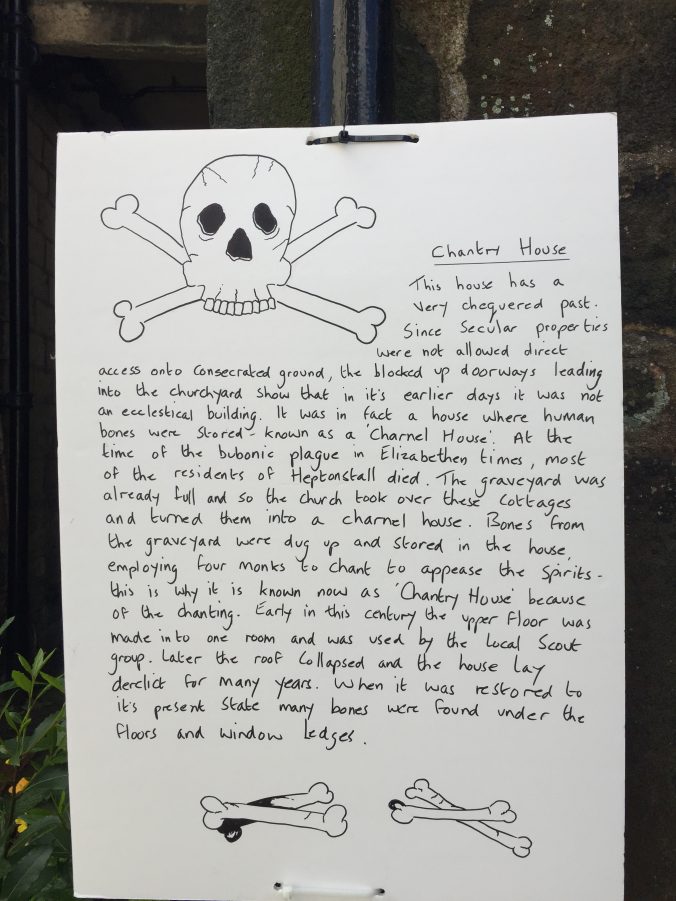 Chantry House
This house has a
very chequered past.
Since Secular properties
were not allowed direct
access onto consecrated ground, the blocked up doorways leading
into the churchyard show that in it's earlier days it was not
an ecclestical building. It was in fact a house where human
bones were stored - known as a 'Charnel House'. At the
time of the bubonic plague in Elizabethen times, most
of the residents of Heptonstall died. The graveyard was
already full and so the church took over these cottages
and turned them into a charnel house. Bones from
the graveyard were dug up and stored in the house,
employing four monks to chant to appease the spirits -
this is why it is known now as 'Chantry House' because
of the chanting. Early in this century the upper floor was
made into one room and was used by the Local Scout
group. Later the roof collapsed and the house lay
derelict for many years. When it was restored to
it's present state many bones were found under the
floors and window ledges.